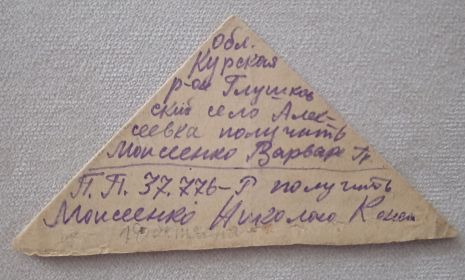 обл.
Курская
р-он Глушков
ский село Алек-
сеевка получить
Моисеенко Варваре
П. П. 37.776-Г получить
Моисеенко Николаю